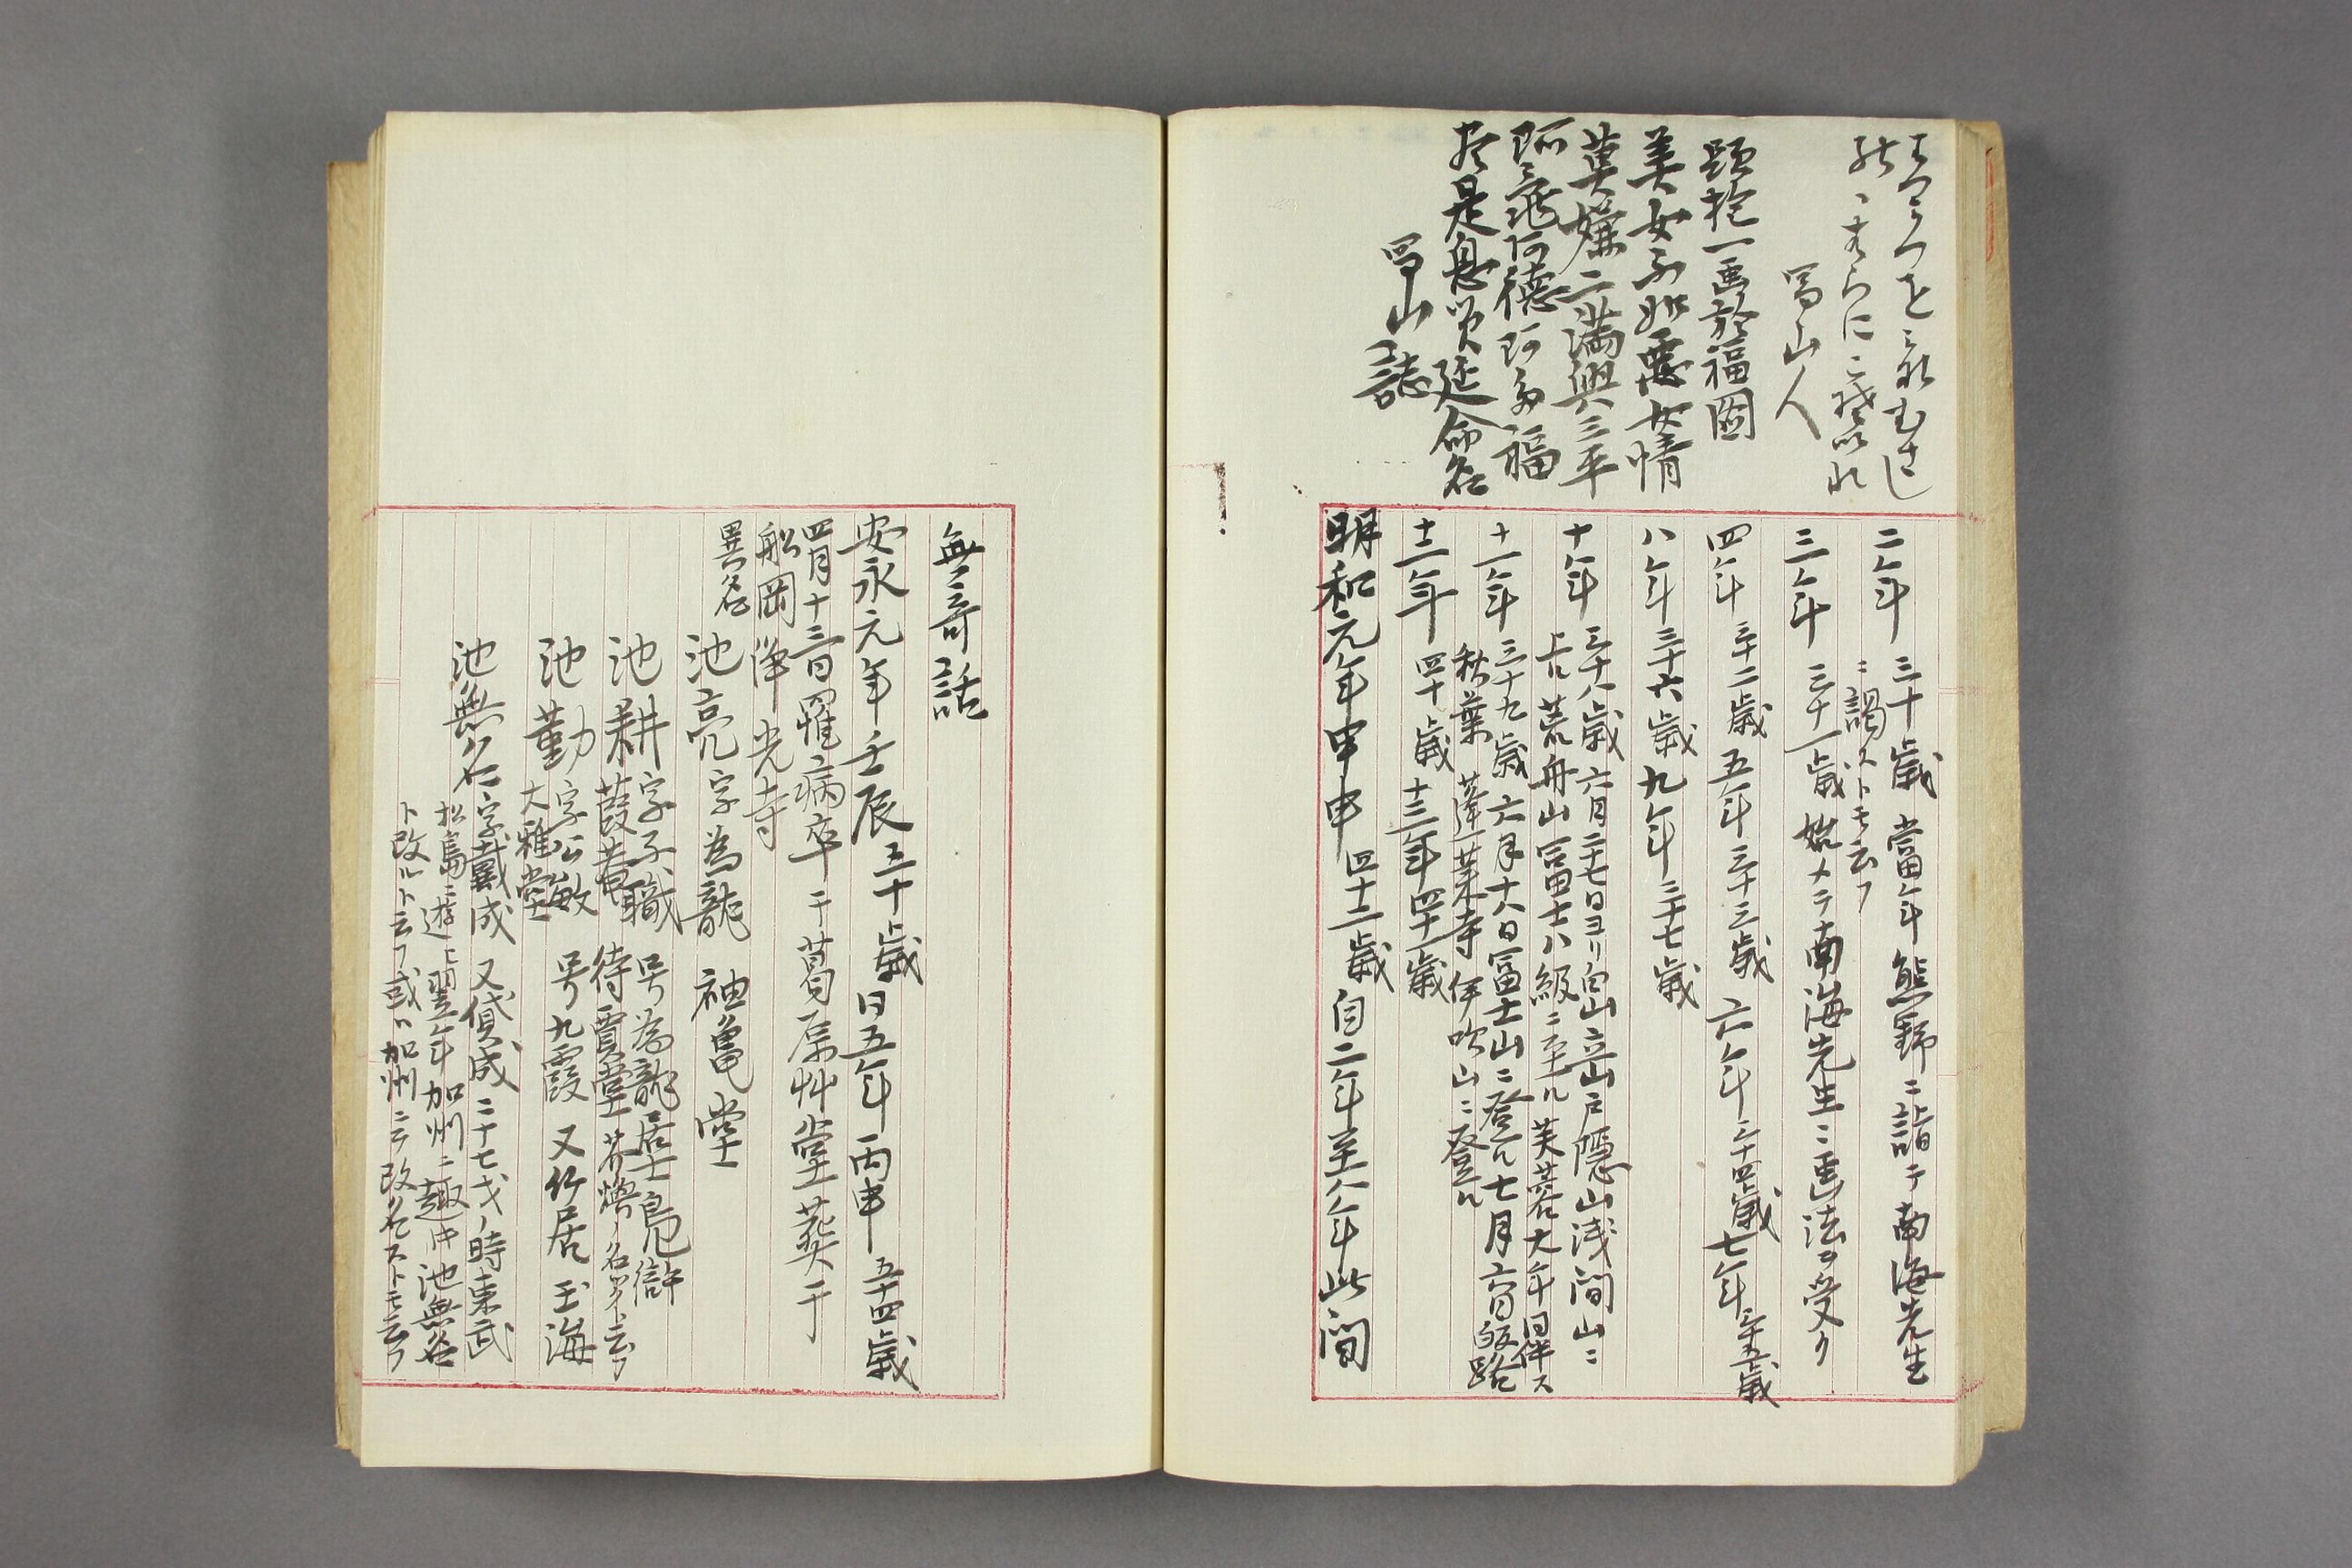 冨山人
題抱一画於福圖
美女不如悪女情
莫嫌二満與三平
阿亀阿徳阿多福
於是息災延命名
冨山誌
二年 三十歳 當年熊野ニ詣テ南海先生
ニ謁ストモ云フ
三年 三十一歳 始メテ南海先生ニ画法ヲ受ク
四年 三十二歳 五年 三十三歳 六年 三十四歳 七年 三十五歳
八年 三十六歳 九年 三十七歳
十年 三十八歳 六月二十七日ヨリ白山立山戸隠山浅間山ニ
上ル荒舟山冨士八級ニ至ル芙蓉大年同伴ス
十一年 三十九歳 六月十八日冨士山ニ登ル七月六日皈路
秋葉 蓬莱寺 伊吹山ニ登ル
十二年 四十歳 十三年 四十一歳
明和元年甲申 四十二歳 自二年至八年此間
無奇話
安永元年壬辰 五十歳 同五年丙申 五十四歳
四月十三日罹病卒于葛原艸堂葬于
船岡浄光寺
異名
池亮 字為龍 袖亀堂
池耕 字子職 号為龍居士 鳧滸
葭菴 待賈堂
池勤 字公敏 号九霞 又竹居 玉海
大雅堂
池無名 字戴成 又貸成 二十七才ノ時東武
松島ニ遊ヒ翌年加州ニ趣キ池無名
ト改ルト云フ或ハ加州ニテ改名ストモ云フ